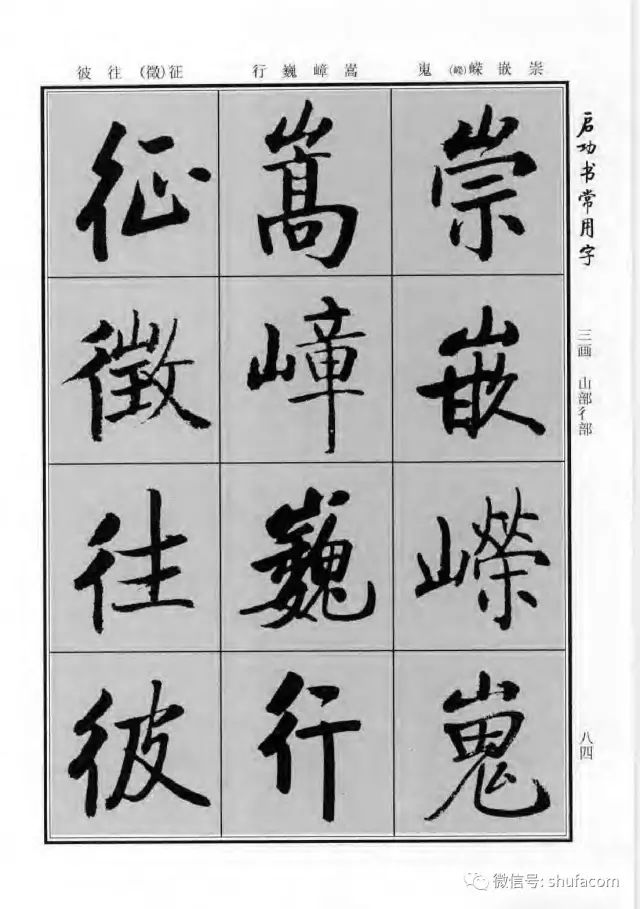 崇嵌嵘(嶸)嵬
嵩嶂巍行
征(徵)往彼
启功书常用字
三画 山部彳部
八四
崇
嵌
嶸
嵬
嵩
嶂
巍
行
征
徵
往
彼
微信号: shufacom